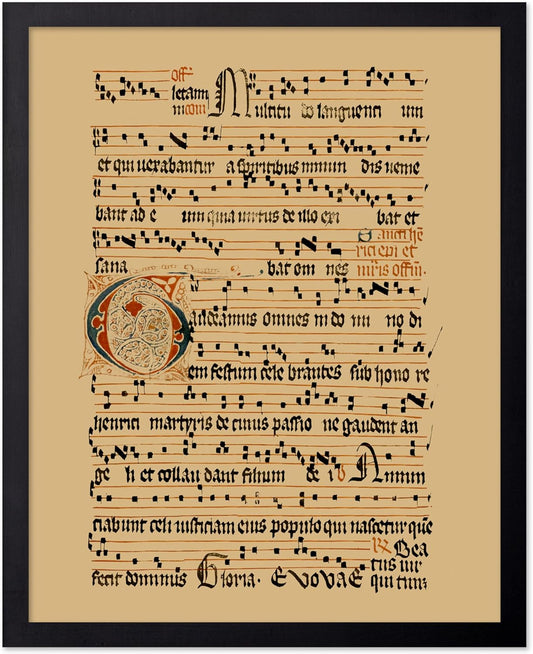 off̄
letam
m com Multitu do languenti um
et qui uexabantur a spiritibus inmun dis uenie
bant ad e um quia uirtus de illo exi bat et
Sancti hē
sana bat om nes rici ep̄i et
m̄ris offm̄.
Gaudeamus omnes in do mi no di
em festum cele brantes sub hono re
henrici martyris de cuius passio ne gaudent an
ge li et collau dant filium de i Annun
ciabunt celi iusticiam eius populo qui nascetur que
RZ Bea
fecit dominus Gloria. EVOVAE tus uir
qui tim̄